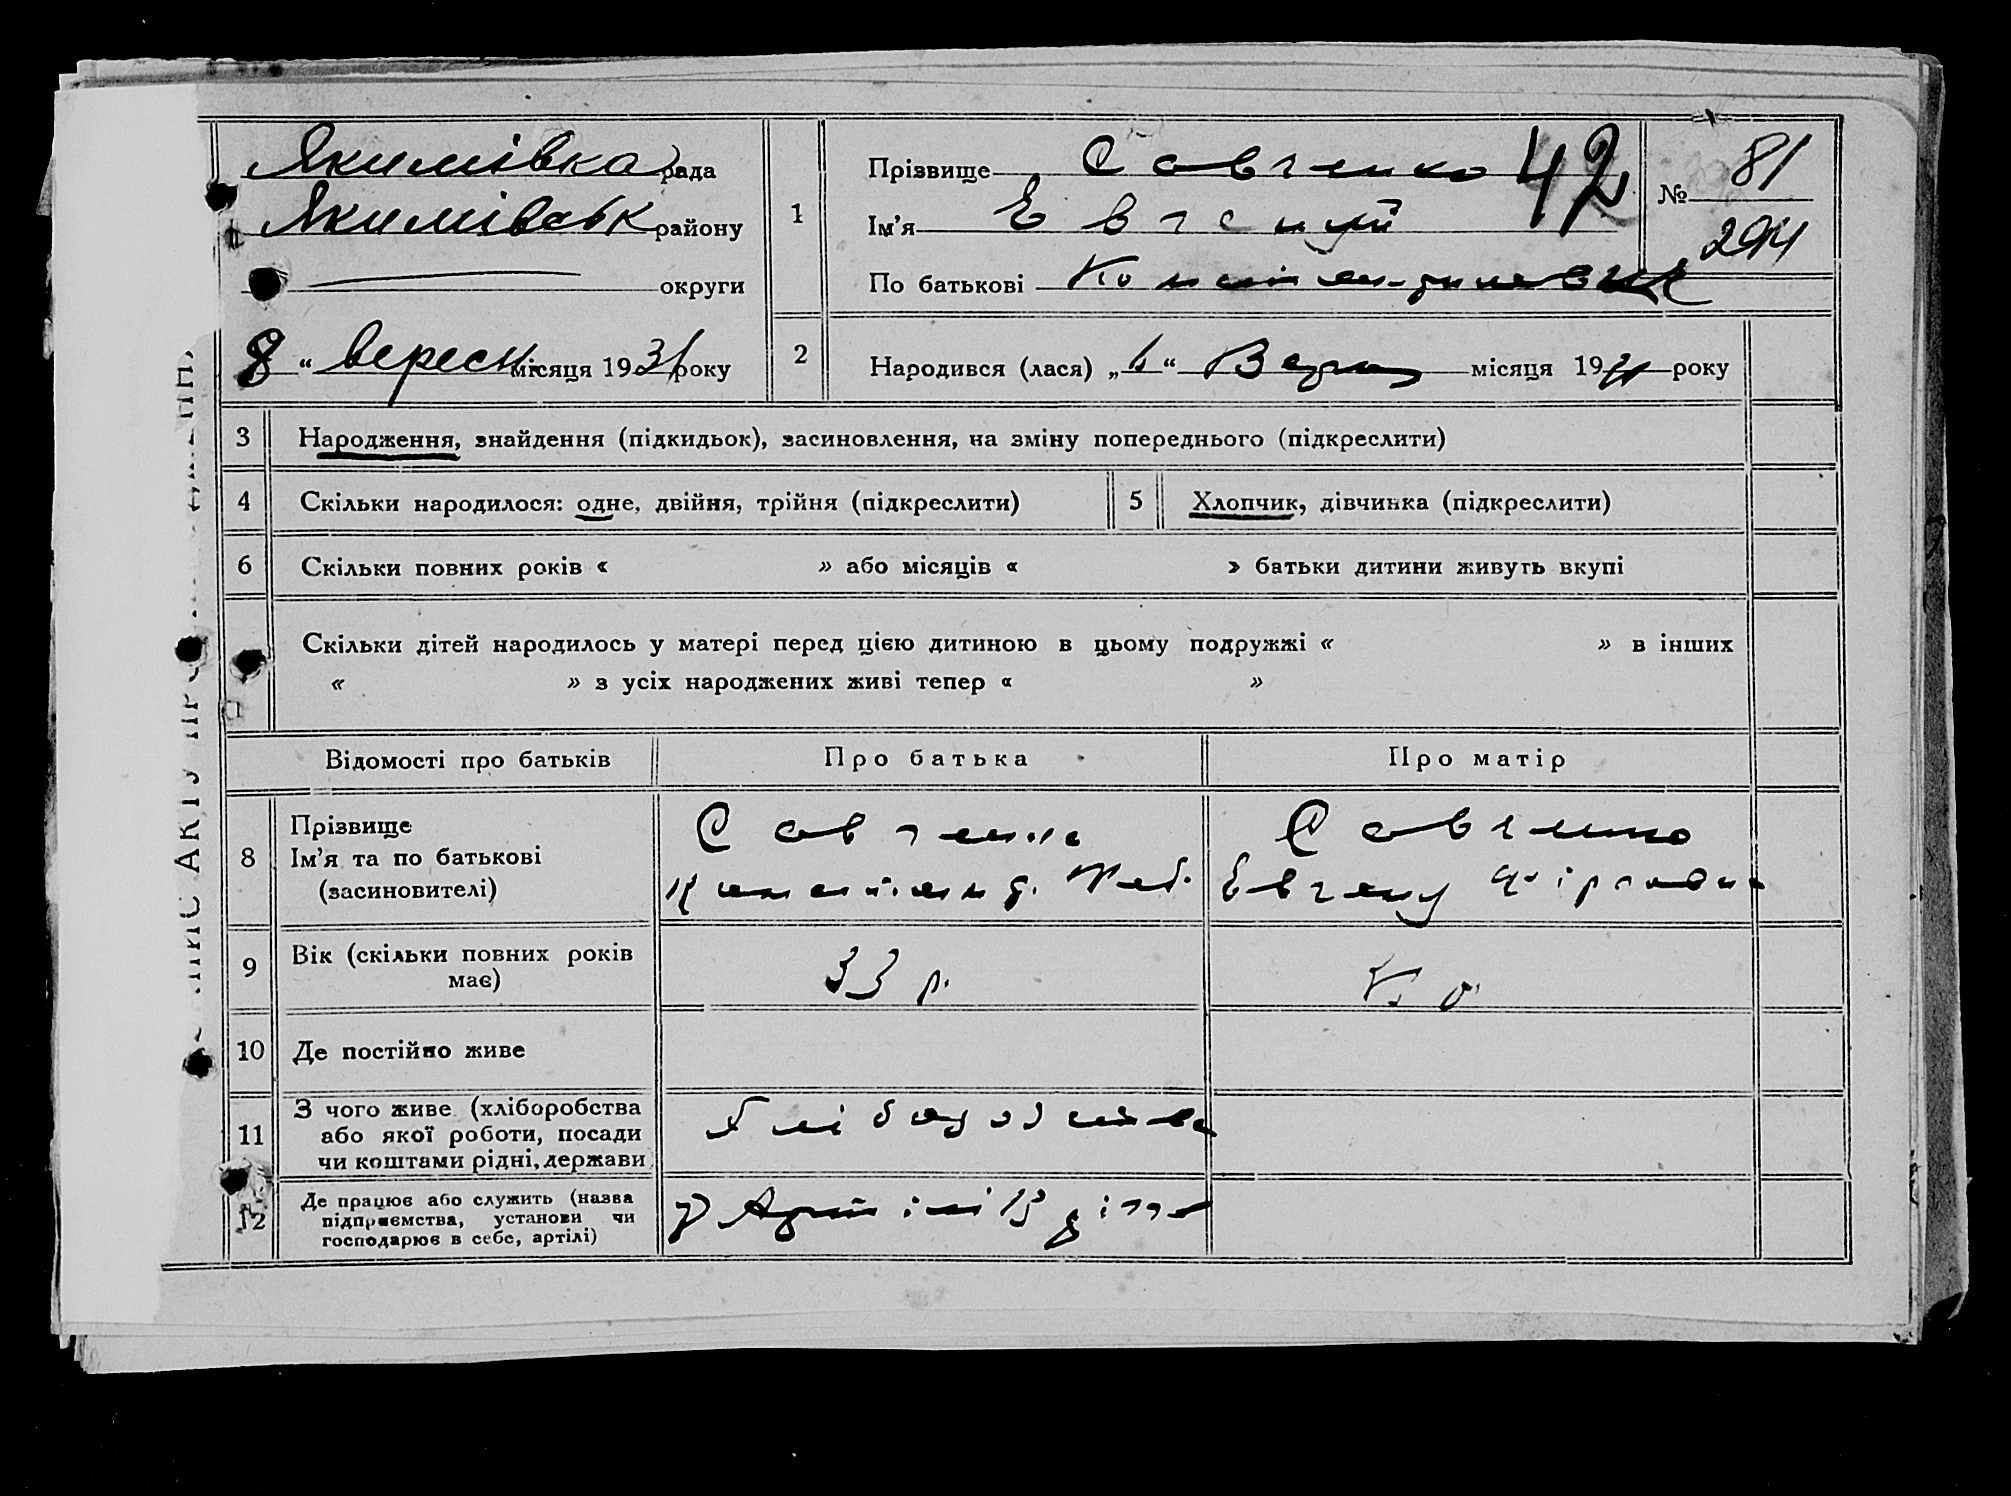 Якимівка рада
Якимівськ району
округи
8 " вересн місяця 1931 року
1
Прізвище Савченко 42
Ім'я Евгений
По батькові Константинович
№ 81
294
2
Народився (лася) „6" місяця 1931 року
3 Народження, знайдення (підкидьок), засиновлення, на зміну попереднього (підкреслити)
4 Скільки народилося: одне, двійня, трійня (підкреслити) 5 Хлопчик, дівчинка (підкреслити)
6 Скільки повних років « » або місяців « » батьки дитини живуть вкупі
Скільки дітей народилось у матері перед цією дитиною в цьому подружжі « » в інших
« » з усіх народжених живі тепер « »
Відомості про батьків Про батька Про матір
8 Прізвище
Ім'я та по батькові
(засиновителі)
Савченко
Константин
Савченко
9 Вік (скільки повних років
має)
33 р.
10 Де постійно живе
11 З чого живе (хліборобства
або якої роботи, посади
чи коштами рідні, держави
Хліборобства
12 Де працює або служить (назва
підприємства, установи чи
господарює в себе, артілі)
АКТУ ПРО